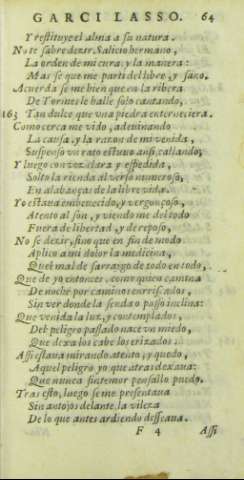 GARCI LASSO. 64
Y restituye el alma a su natura.
No te sabre dezir, Salicio hermano,
La orden de mi cura, y la manera:
Mas se que me parti del libre, y sano.
Acuerda se me bien que en la ribera
De Tormes le halle solo cantando,
163 Tan dulce que vna piedra enterneciera.
Como cerca me vido, adeuinando
La causa, y la razon de mi venida,
Suspenso vn rato estuuo ansi, callando;
Y luego con voz clara y espedida,
Solto la rienda al verso numeroso,
En alabanças de la libre vida.
Yo estaua embeuecido, y vergonçoso,
Atento al son, y viendo me del todo
Fuera de libertad, y de reposo,
No se dezir, sino que en fin de modo
Aplico a mi dolor la medicina,
Que el mal desarraygo de todo en todo,
Que de yo entonces, como quien camina
De noche por caminos enriscados,
Sin ver donde la senda o passo inclina:
Que venida la luz, y contemplados,
Del peligro passado nace vn miedo,
Que dexa los cabellos erizados.
Assi estaua mirando, atento, y quedo,
Aquel peligro yo que atras dexaua:
Que nunca sin temor pensallo puedo.
Tras esto, luego se me presentaua
Sin antojos delante, la vileza
De lo que antes ardiendo desseaua.
F 4 Assi